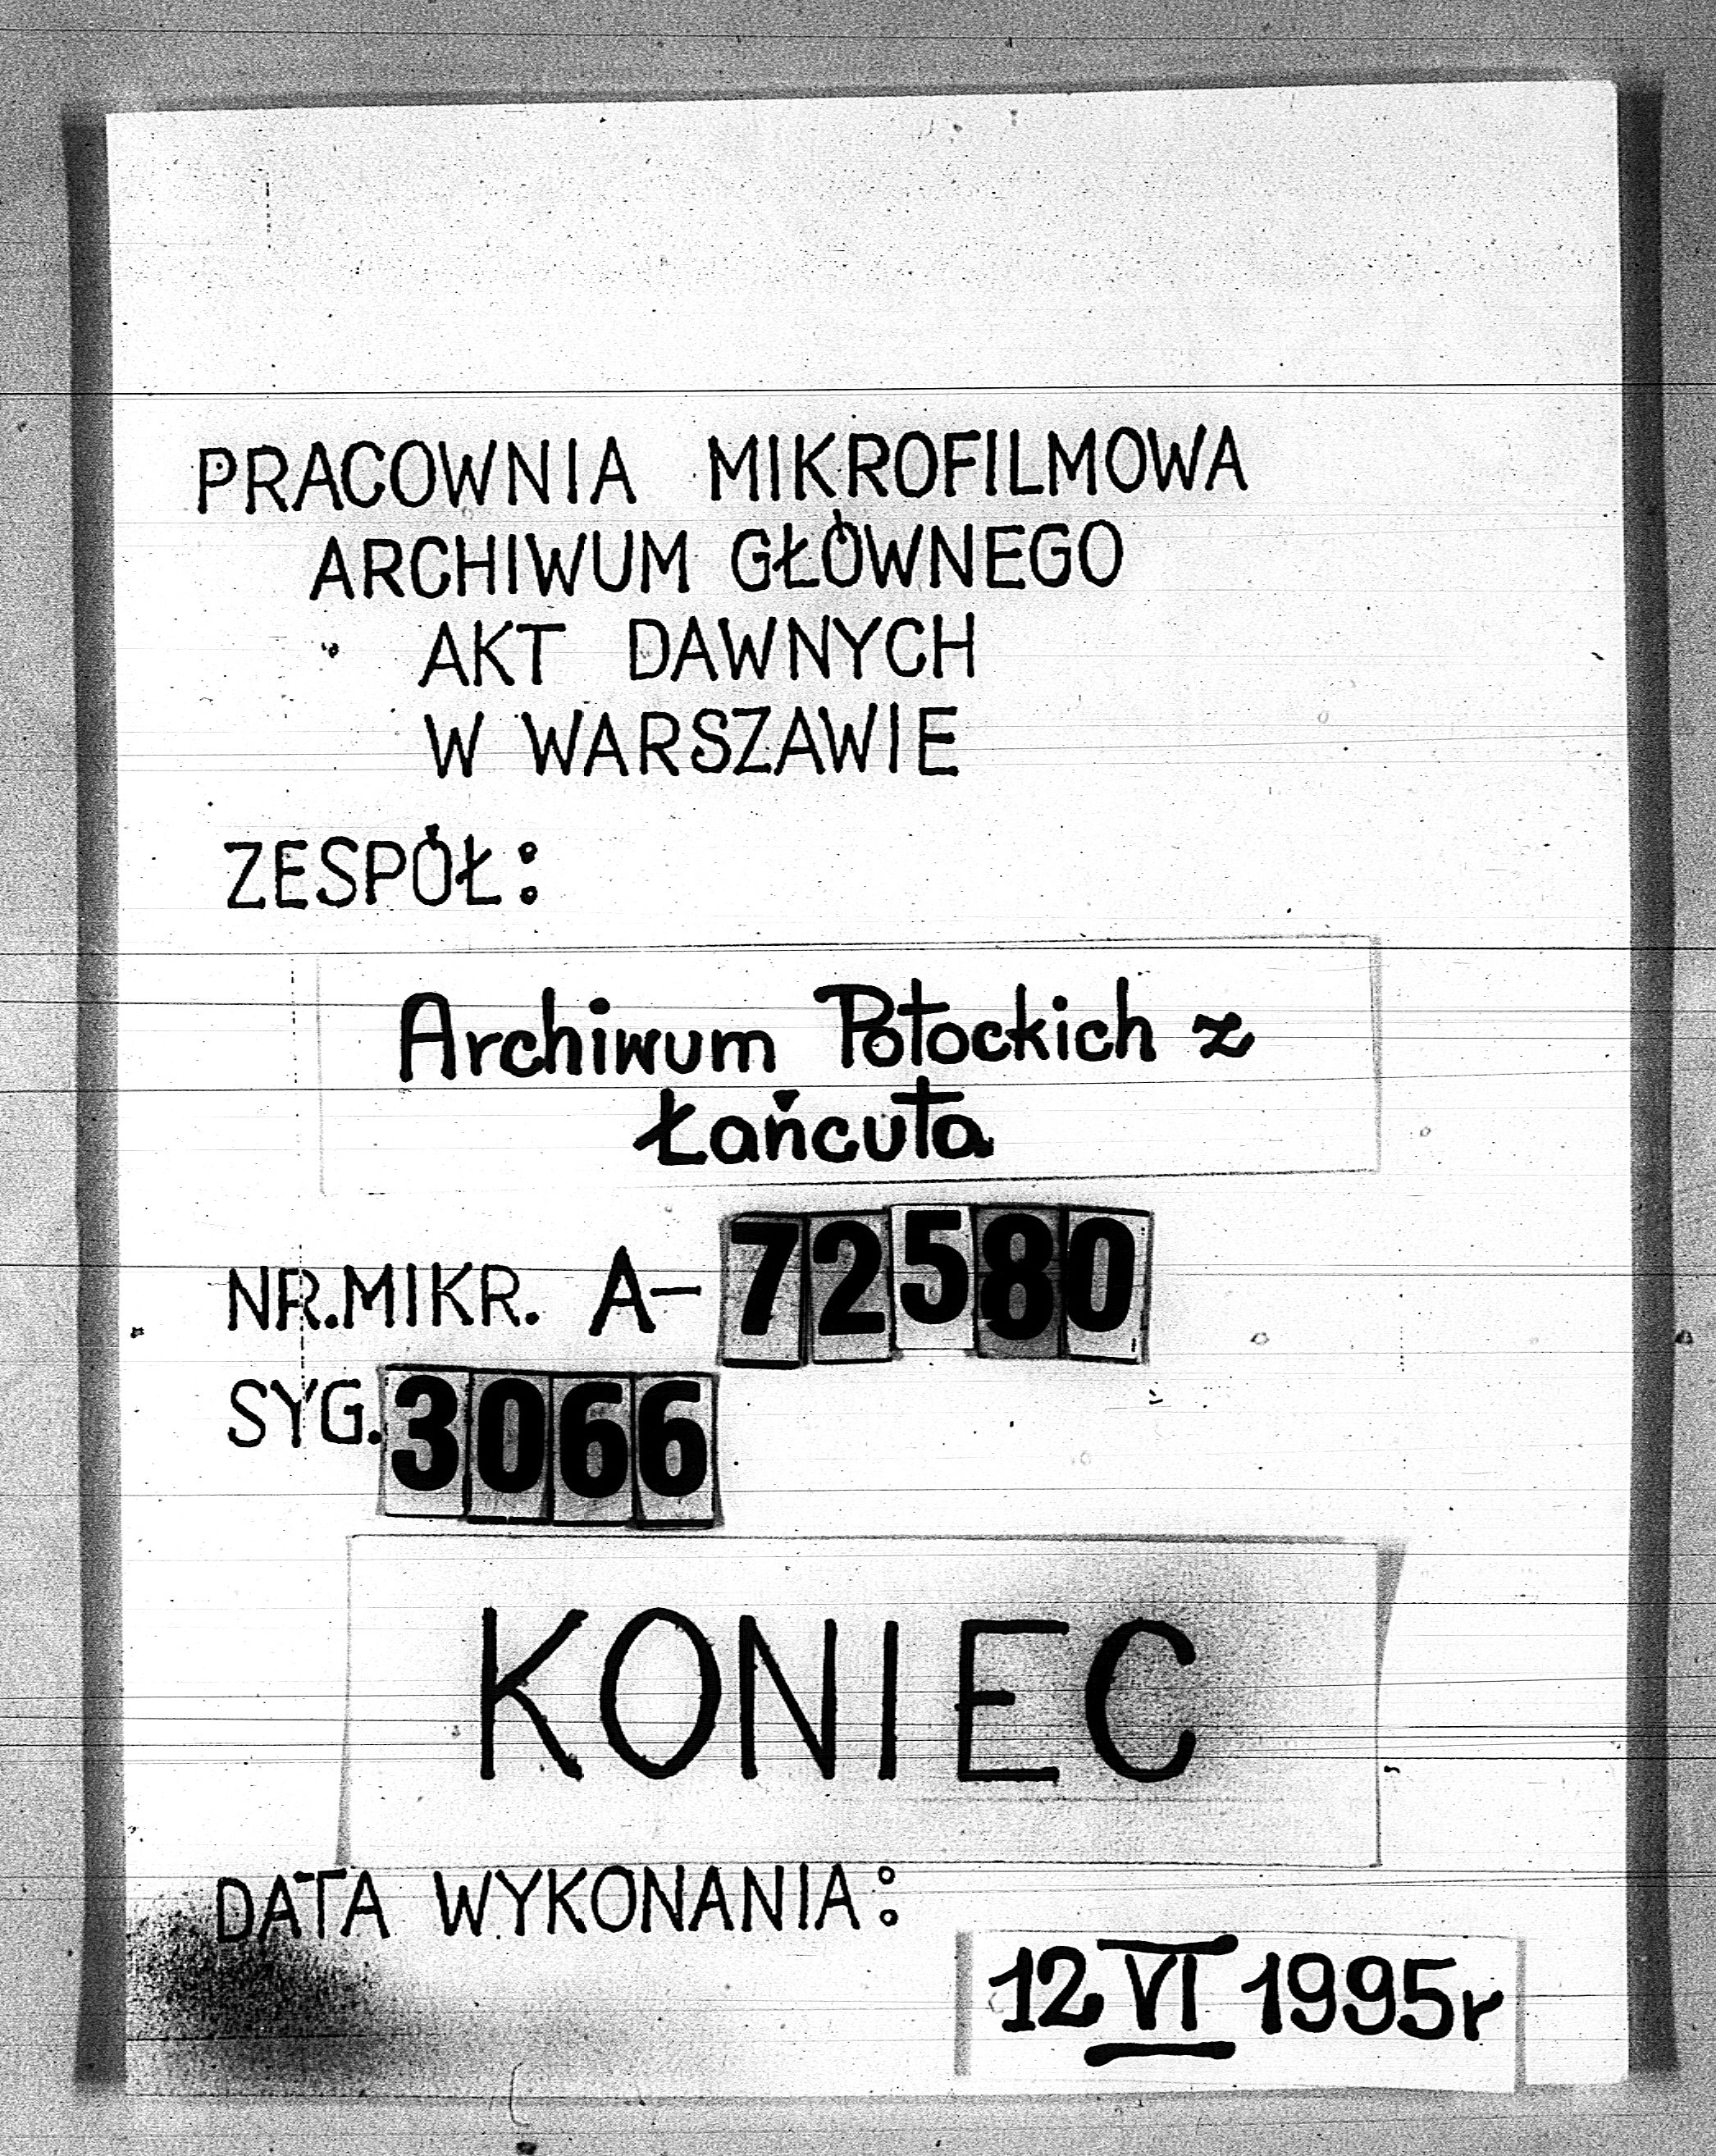 PRACOWNIA MIKROFILMOWA
ARCHIWUM GŁÓWNEGO
AKT DAWNYCH
W WARSZAWIE
ZESPÓŁ:
Archiwum Potockich z
Łańcuta
NR.MIKR. A-72580
SYG.3066
KONIEC
DATA WYKONANIA:
12 VI 1995r